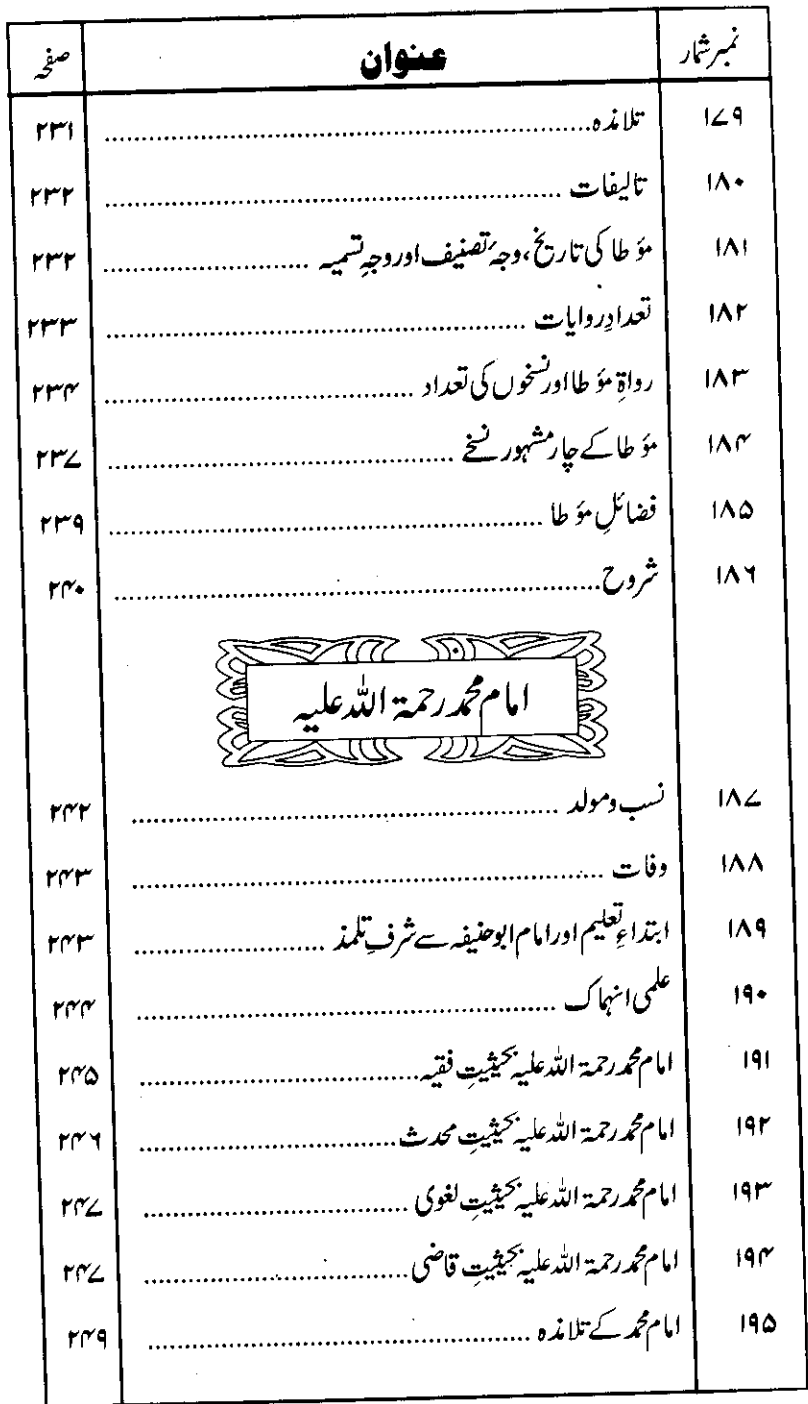 نمبر شمار عنوان صفحہ
۱۷۹ تلامذہ ........ ۲۳۱
۱۸۰ تالیفات ........ ۲۳۲
۱۸۱ مؤطا کی تاریخ، وجۂ تصنیف اور وجہِ تسمیہ ........ ۲۳۲
۱۸۲ تعدادِ روایات ........ ۲۳۳
۱۸۳ رواۃِ مؤطا اور نسخوں کی تعداد ........ ۲۳۴
۱۸۴ مؤطا کے چار مشہور نسخے ........ ۲۳۷
۱۸۵ فضائلِ مؤطا ........ ۲۳۹
۱۸۶ شروح ........ ۲۴۰
امام محمد رحمۃ اللہ علیہ
۱۸۷ نسب و مولد ........ ۲۴۲
۱۸۸ وفات ........ ۲۴۳
۱۸۹ ابتداءِ تعلیم اور امام ابو حنیفہ سے شرفِ تلمذ ........ ۲۴۳
۱۹۰ علمی انہماک ........ ۲۴۴
۱۹۱ امام محمد رحمۃ اللہ علیہ بحیثیتِ فقیہ ........ ۲۴۵
۱۹۲ امام محمد رحمۃ اللہ علیہ بحیثیتِ محدث ........ ۲۴۶
۱۹۳ امام محمد رحمۃ اللہ علیہ بحیثیتِ لغوی ........ ۲۴۷
۱۹۴ امام محمد رحمۃ اللہ علیہ بحیثیتِ قاضی ........ ۲۴۷
۱۹۵ امام محمد کے تلامذہ ........ ۲۴۹